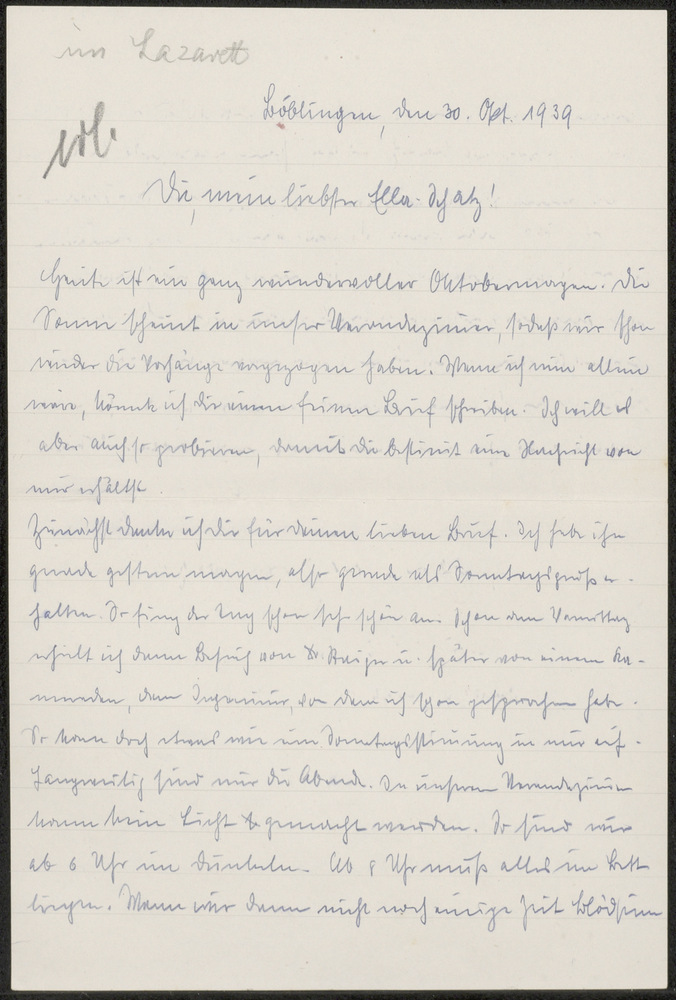 im Lazarett
Böblingen, den 30. Okt. 1939
Du, mein liebster Ella-Schatz!
Heute ist ein ganz wundervoller Oktobermorgen. Die
Sonne scheint in unser Verandazimmer, sodaß wir schon
wieder die Vorhänge vorgezogen haben. Wenn ich nun allein
wäre, könnte ich Dir einen feinen Brief schreiben. Ich will es
aber auch so probieren, damit Du bestimt eine Nachricht von
mir erhältst.
Zunächst danke ich Dir für Deinen lieben Brief. Ich habe ihn
gerade gestern morgen, also gerade als Sonntagsgruß er-
halten. So fing der Tag schon sehr schön an. Schon am Vormittag
erhielt ich dann Besuch von Dr u. später von einem Ka-
meraden, dem Ingenieur, von dem ich schon gesprochen habe.
So kam doch etwas wie eine Sonntagsstimmung in mir auf.
Langweilig sind nur die Abende. In unserem Verandazimmer
kann kein Licht gemacht werden. So sind wir
ab 6 Uhr im Dunkeln. Ab 8 Uhr muß alles im Bett
liegen. Wenn wir dann nicht noch einige Zeit Blödsinn